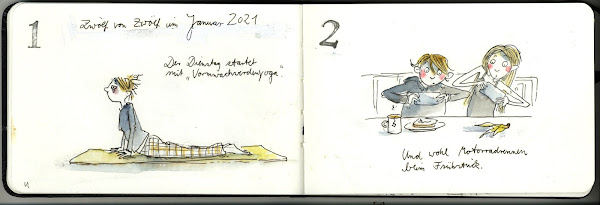 1
Zwölf von Zwölf im Januar 2021
Der Dienstag startet
mit "Vornwachwerdenyoga".
2
Und wohl Motorradrennen
beim Frühstück.